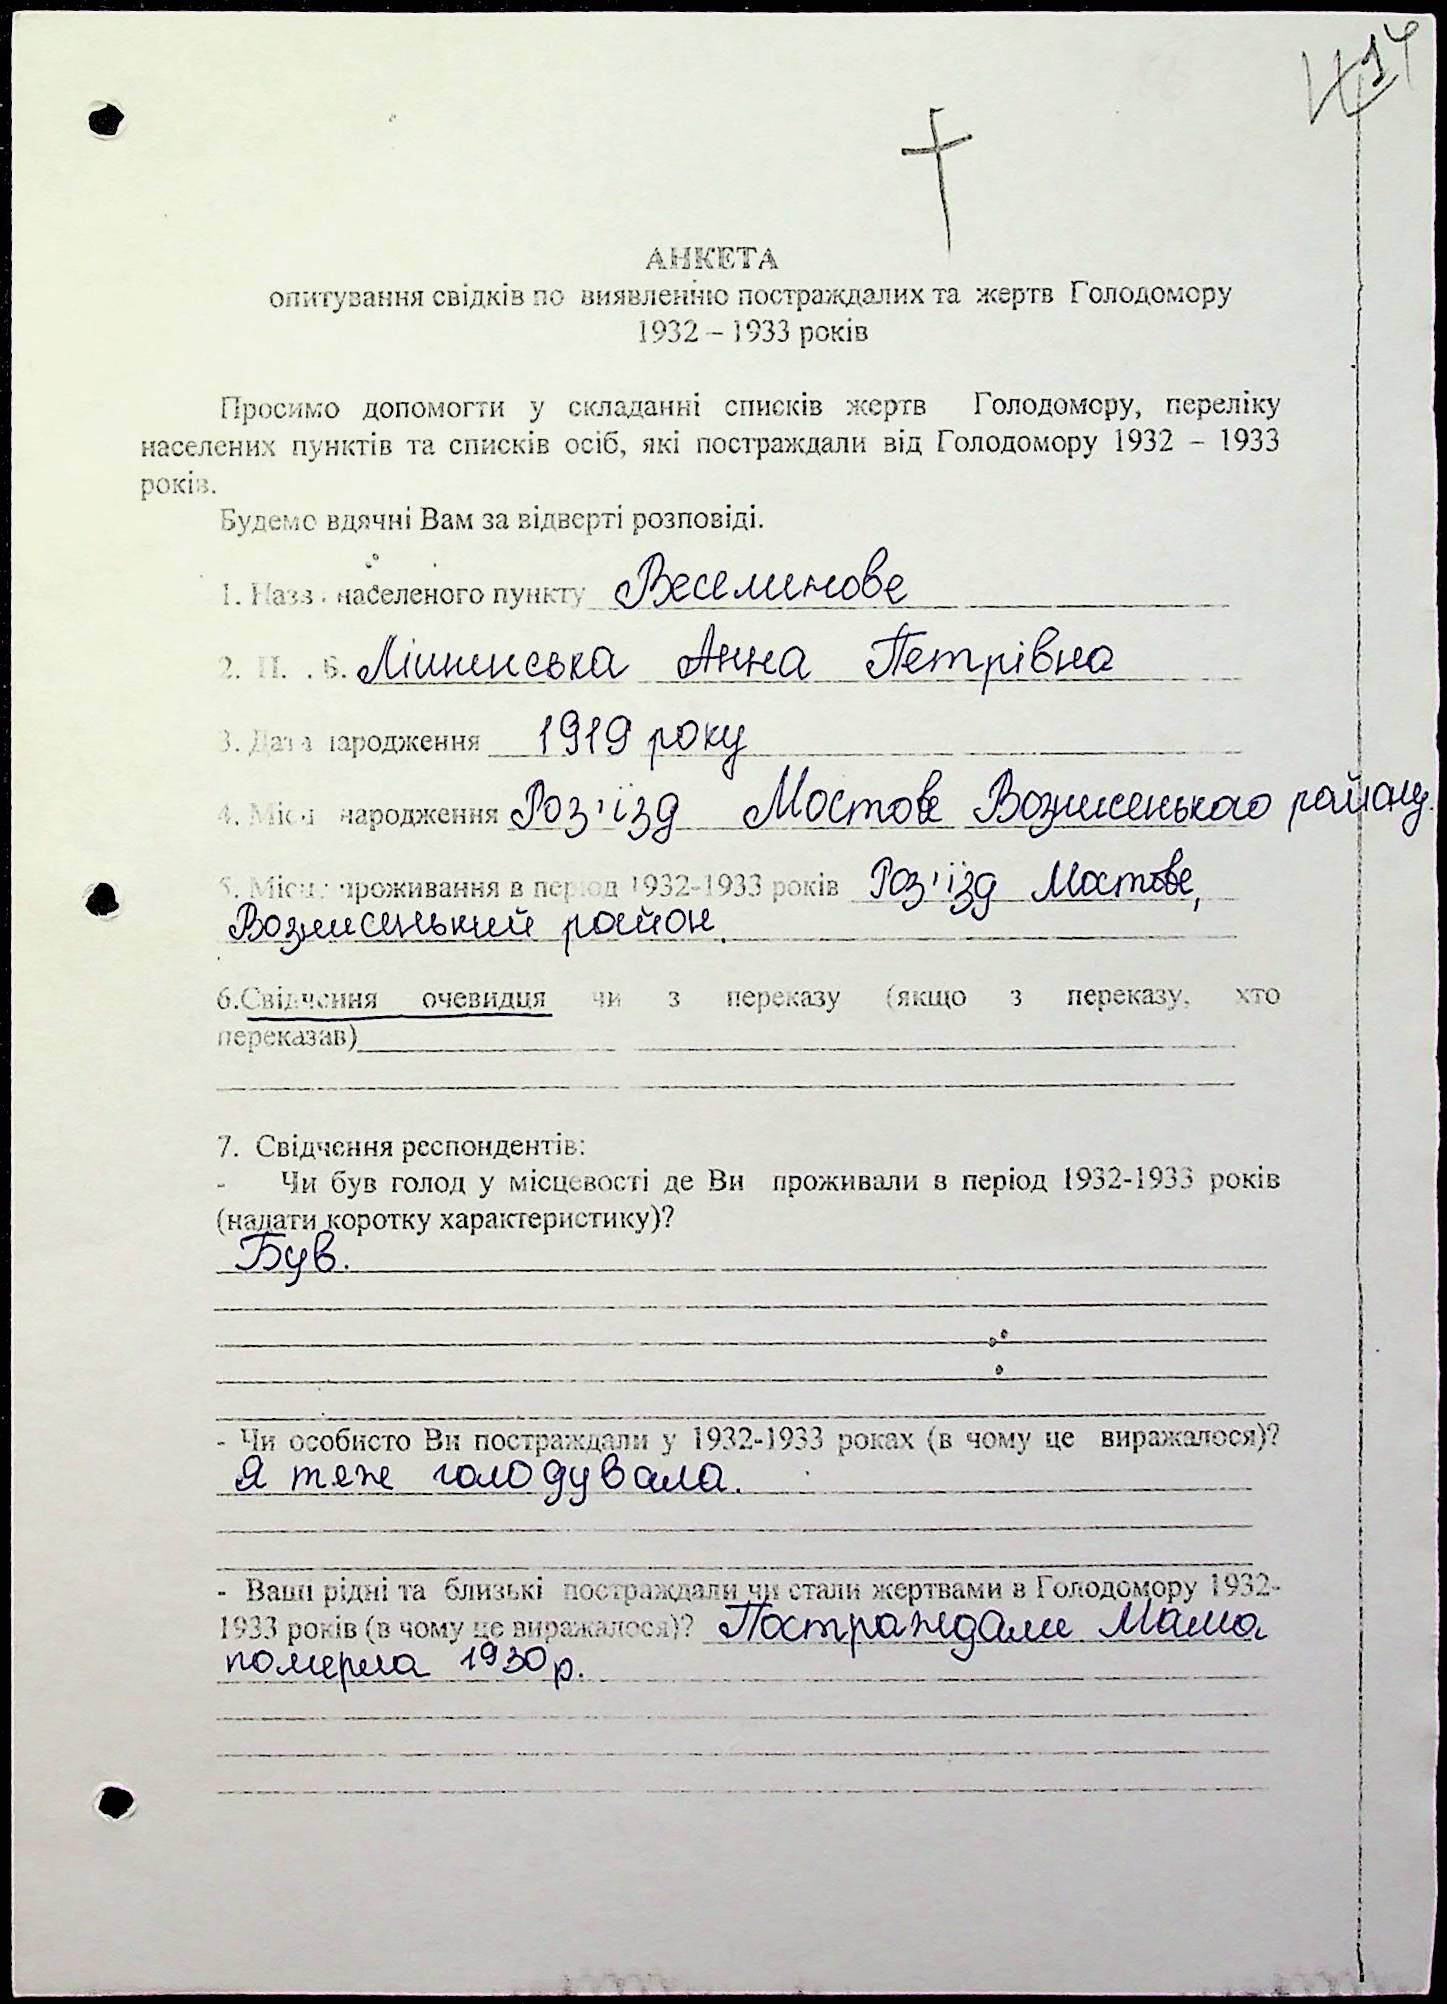 АНКЕТА
опитування свідків по виявленню постраждалих та жертв Голодомору
1932 – 1933 років
Просимо допомогти у складанні списків жертв Голодомору, переліку
населених пунктів та списків осіб, які постраждали від Голодомору 1932 – 1933
років.
Будемо вдячні Вам за відверті розповіді.
1. Назв населеного пункту Веселинове
2. П. . Б. Анна Петрівна
3. Дата народження 1919 року
4. Місц народження Роз'їзд Мостове район
5. Місц проживання в період 1932-1933 років Роз'їзд Мостове,
район.
6.Свідчення очевидця чи з переказу (якщо з переказу, хто
переказав)
7. Свідчення респондентів:
- Чи був голод у місцевості де Ви проживали в період 1932-1933 років
(надати коротку характеристику)?
Був.
- Чи особисто Ви постраждали у 1932-1933 роках (в чому це виражалося)?
Я теж голодувала.
- Ваші рідні та близькі постраждали чи стали жертвами в Голодомору 1932-
1933 років (в чому це виражалося)? Постраждали Мама
померла 1930 р.